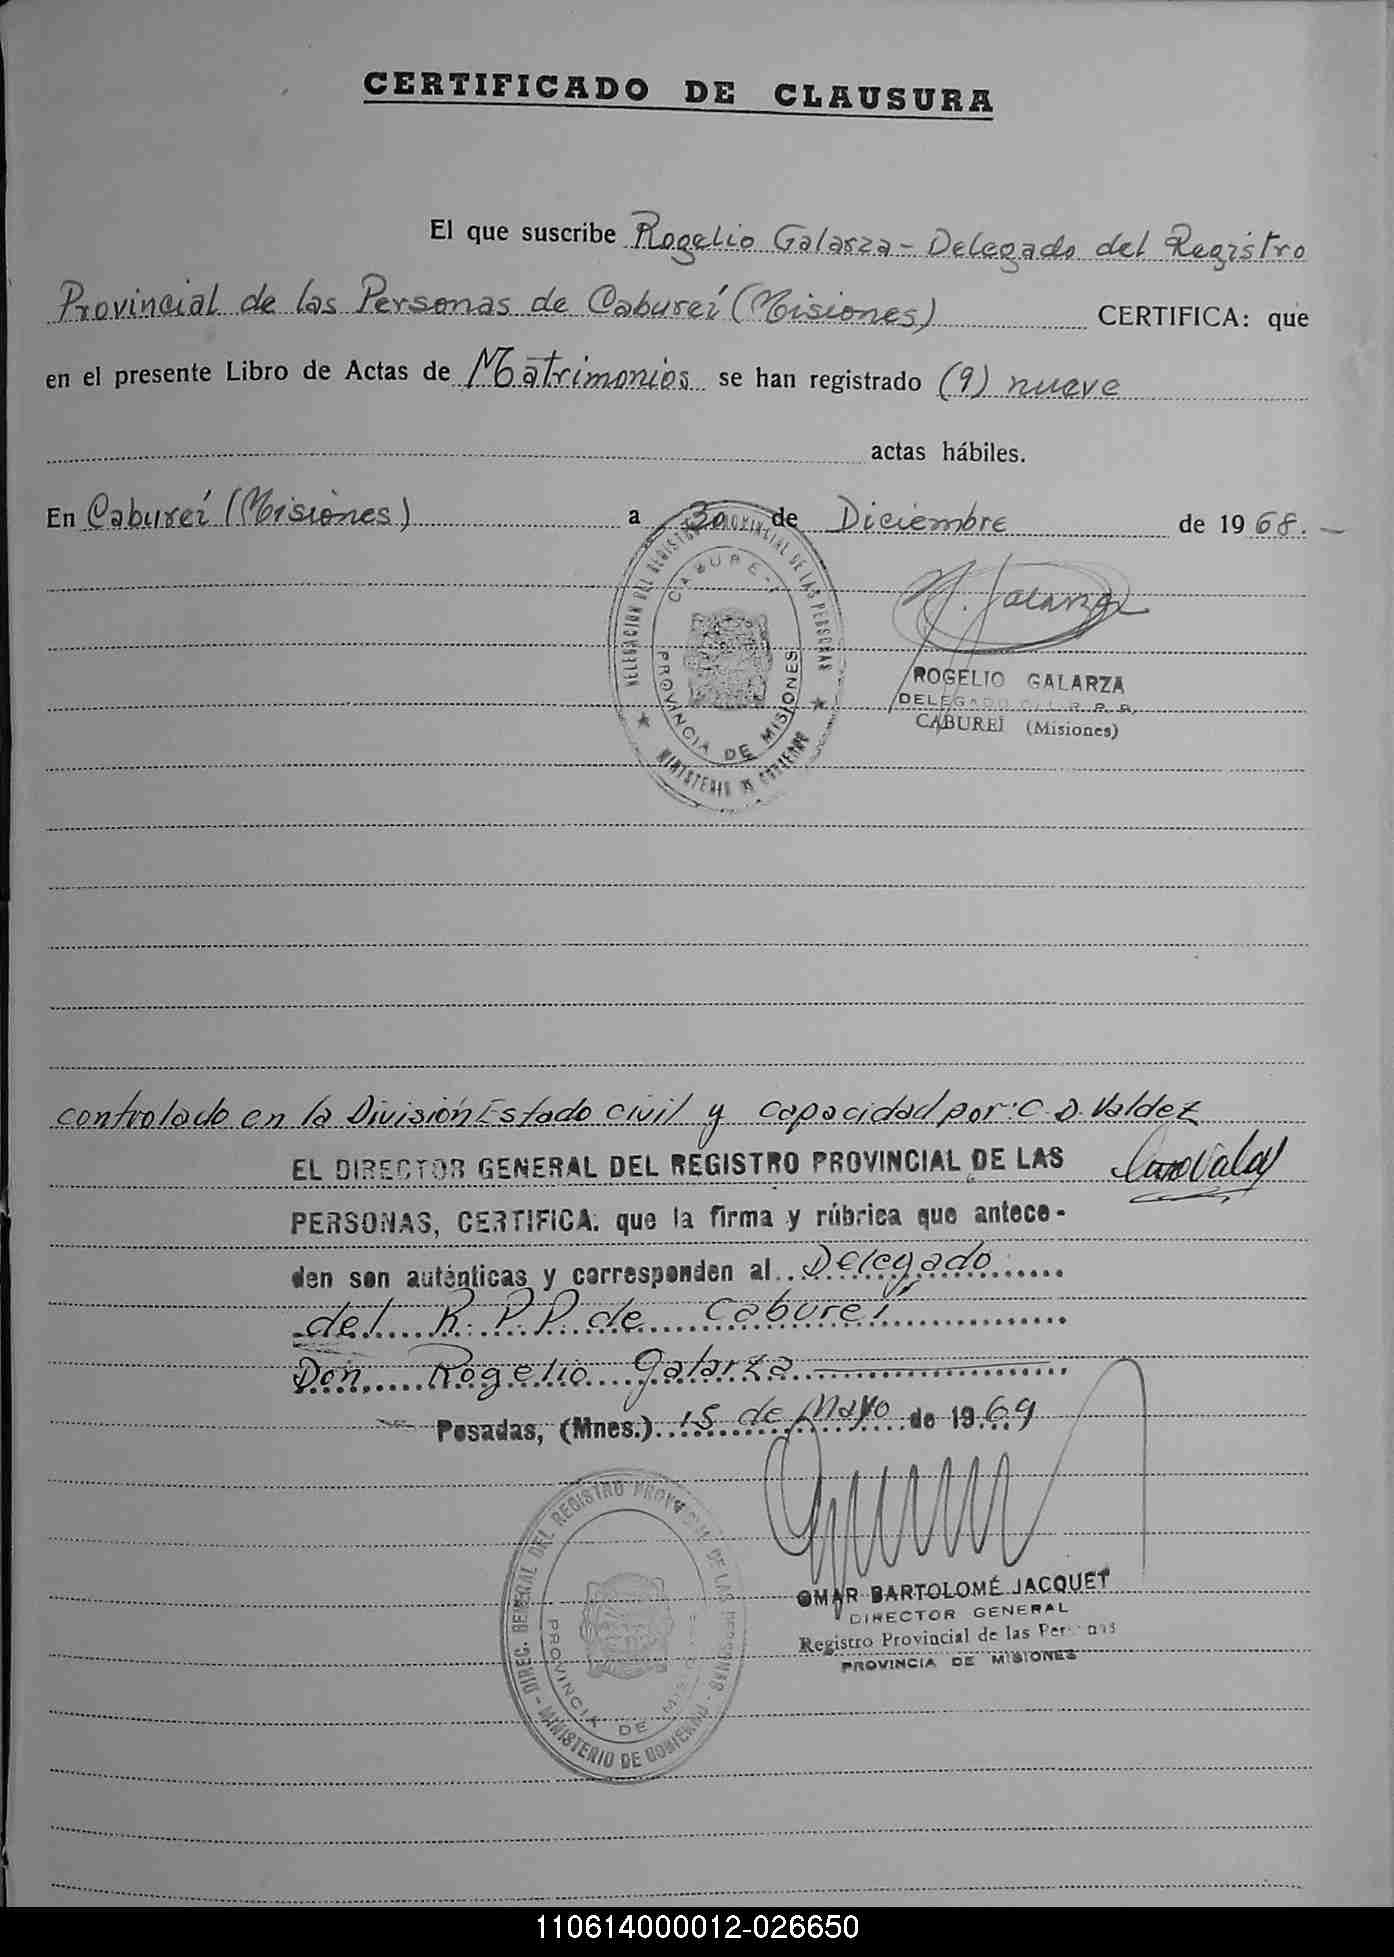 CERTIFICADO DE CLAUSURA
El que suscribe Rogelio Galarza - Delegado del Registro
Provincial de las Personas de Cabureí (Misiones) CERTIFICA: que
en el presente Libro de Actas de Matrimonios se han registrado (9) nueve
actas hábiles.
En Cabureí (Misiones) a 30 de Diciembre de 1968.-
DELEGACION DEL REGISTRO PROVINCIAL DE LAS PERSONAS
CABURE-I
PROVINCIA DE MISIONES
MINISTERIO DE GOBIERNO
R. Galarza
ROGELIO GALARZA
DELEGADO DEL R. P. P.
CABUREÍ (Misiones)
controlado en la División Estado civil y capacidad por: C. D. Valdez
EL DIRECTOR GENERAL DEL REGISTRO PROVINCIAL DE LAS
PERSONAS, CERTIFICA: que la firma y rúbrica que antece-
den son auténticas y corresponden al Delegado
del R. P. P. de Cabureí
Don Rogelio Galarza
Posadas, (Mnes.) 15 de Mayo de 1969
DIREC. GENERAL DEL REGISTRO PROVINCIAL DE LAS PERSONAS
PROVINCIA DE MISIONES
- MINISTERIO DE GOBIERNO -
OMAR BARTOLOMÉ JACQUET
DIRECTOR GENERAL
Registro Provincial de las Personas
PROVINCIA DE MISIONES
110614000012-026650